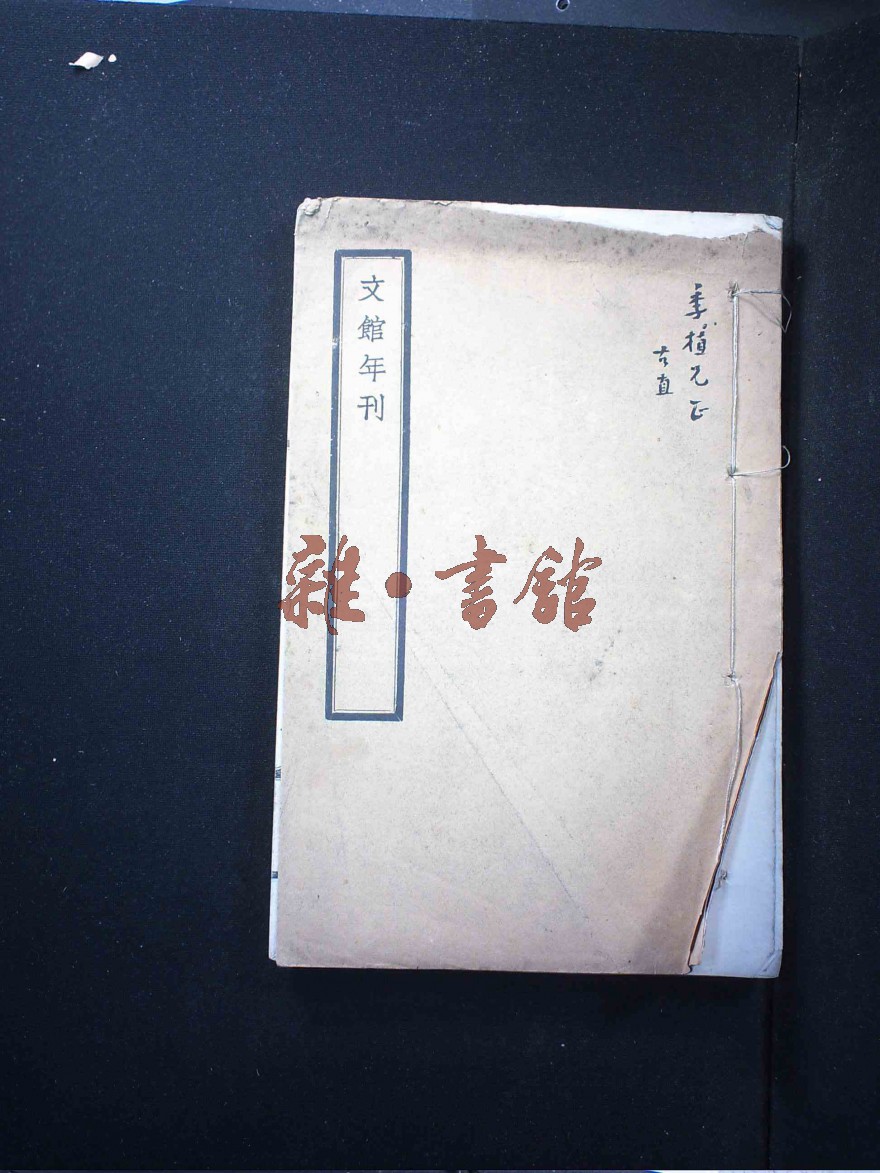 季植兄正
古直
文館年刊
雜·書館